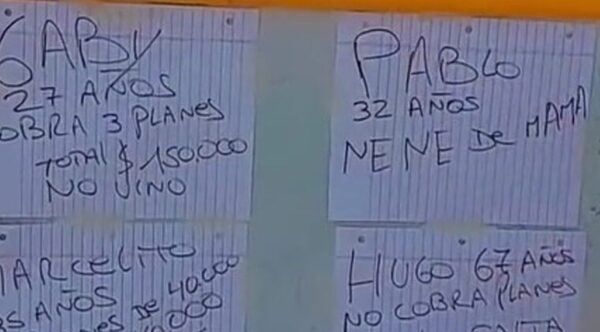 GABY
27 AÑOS
COBRA 3 PLANES
TOTAL $150.000
NO VINO
PABLO
32 AÑOS
NENE DE MAMA
MARCELITO
AÑOS
DE 40.000
HUGO 67 AÑOS
NO COBRA PLANES